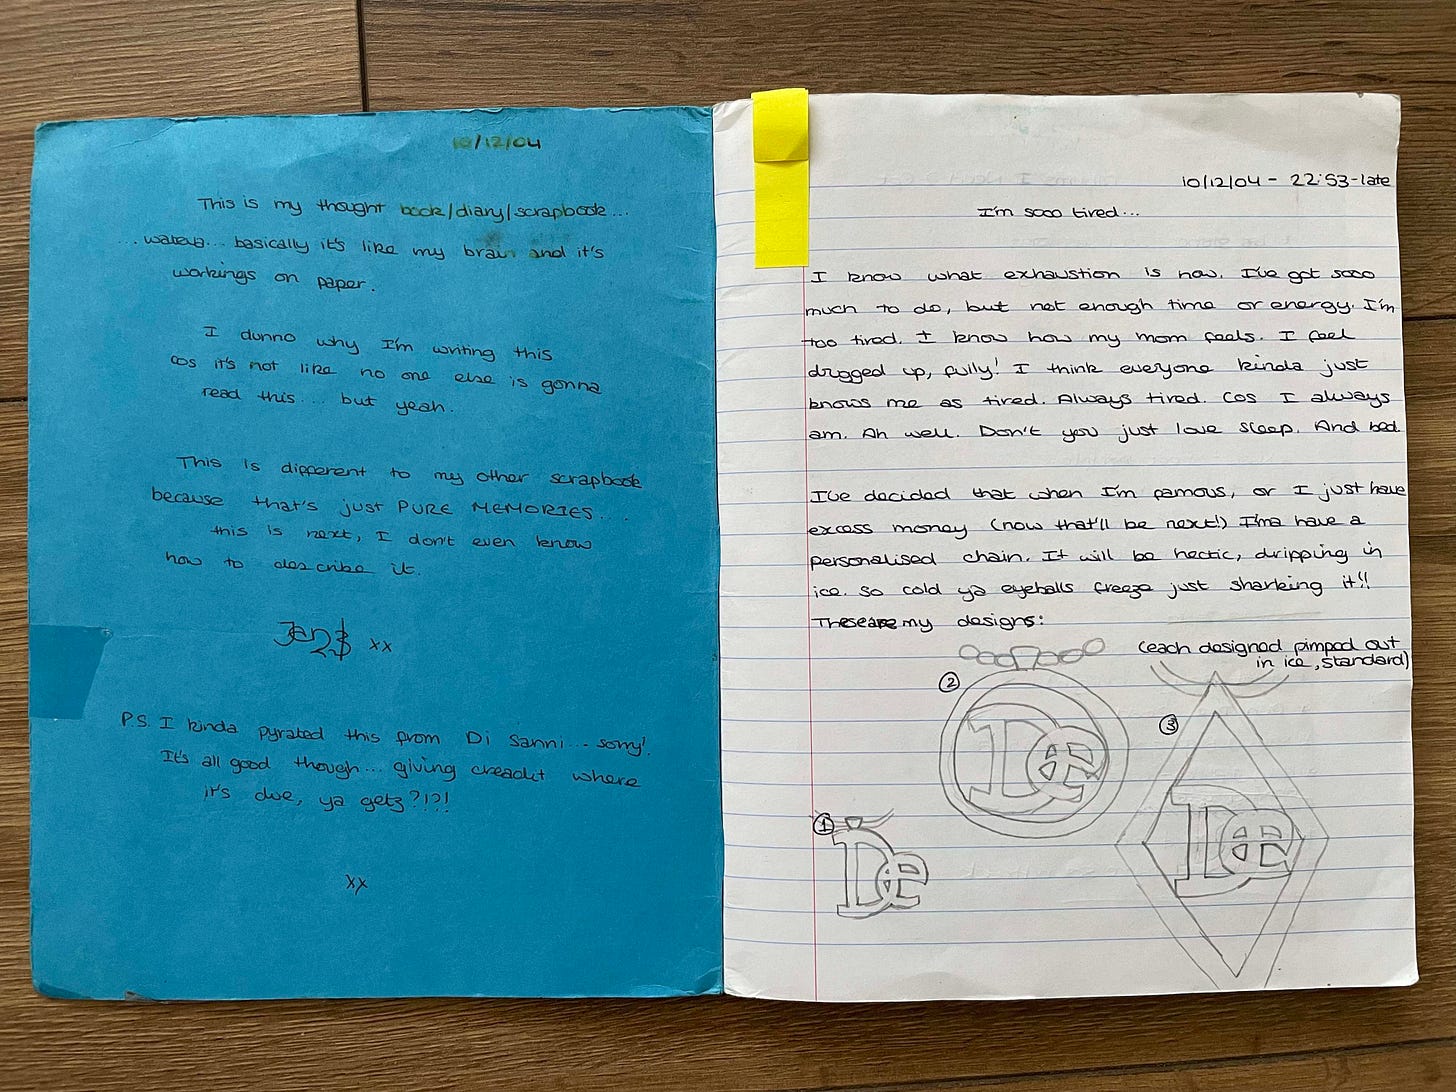 10/12/04
This is my thought book/diary/scrapbook...
...wateva... basically it's like my brain and it's
workings on paper.
I dunno why I'm writing this
cos it's not like no one else is gonna
read this... but yeah.
This is different to my other scrapbook
because that's just PURE MEMORIES...
this is next, I don't even know
how to describe it.
xx
P.S. I kinda pyrated this from Di Sanni... sorry!
It's all good though... giving creadit where
it's due, ya getz?!?!
xx
10/12/04 - 22:53-late
I'm sooo tired...
I know what exhaustion is now. I've got sooo
much to do, but not enough time or energy. I'm
too tired. I know how my mom feels. I feel
drgged up, fully! I think everyone kinda just
knows me as tired. Always tired. Cos I always
am. Ah well. Don't you just love sleep. And bed.
I've decided that when I'm famous, or I just have
excess money (now that'll be next!) I'ma have a
personalised chain. It will be hectic, dripping in
ice. So cold ya eyeballs freeze just sharking it!!
These are my designs:
(each designed pimped out
in ice, standard)
2
De
3
De
1
De